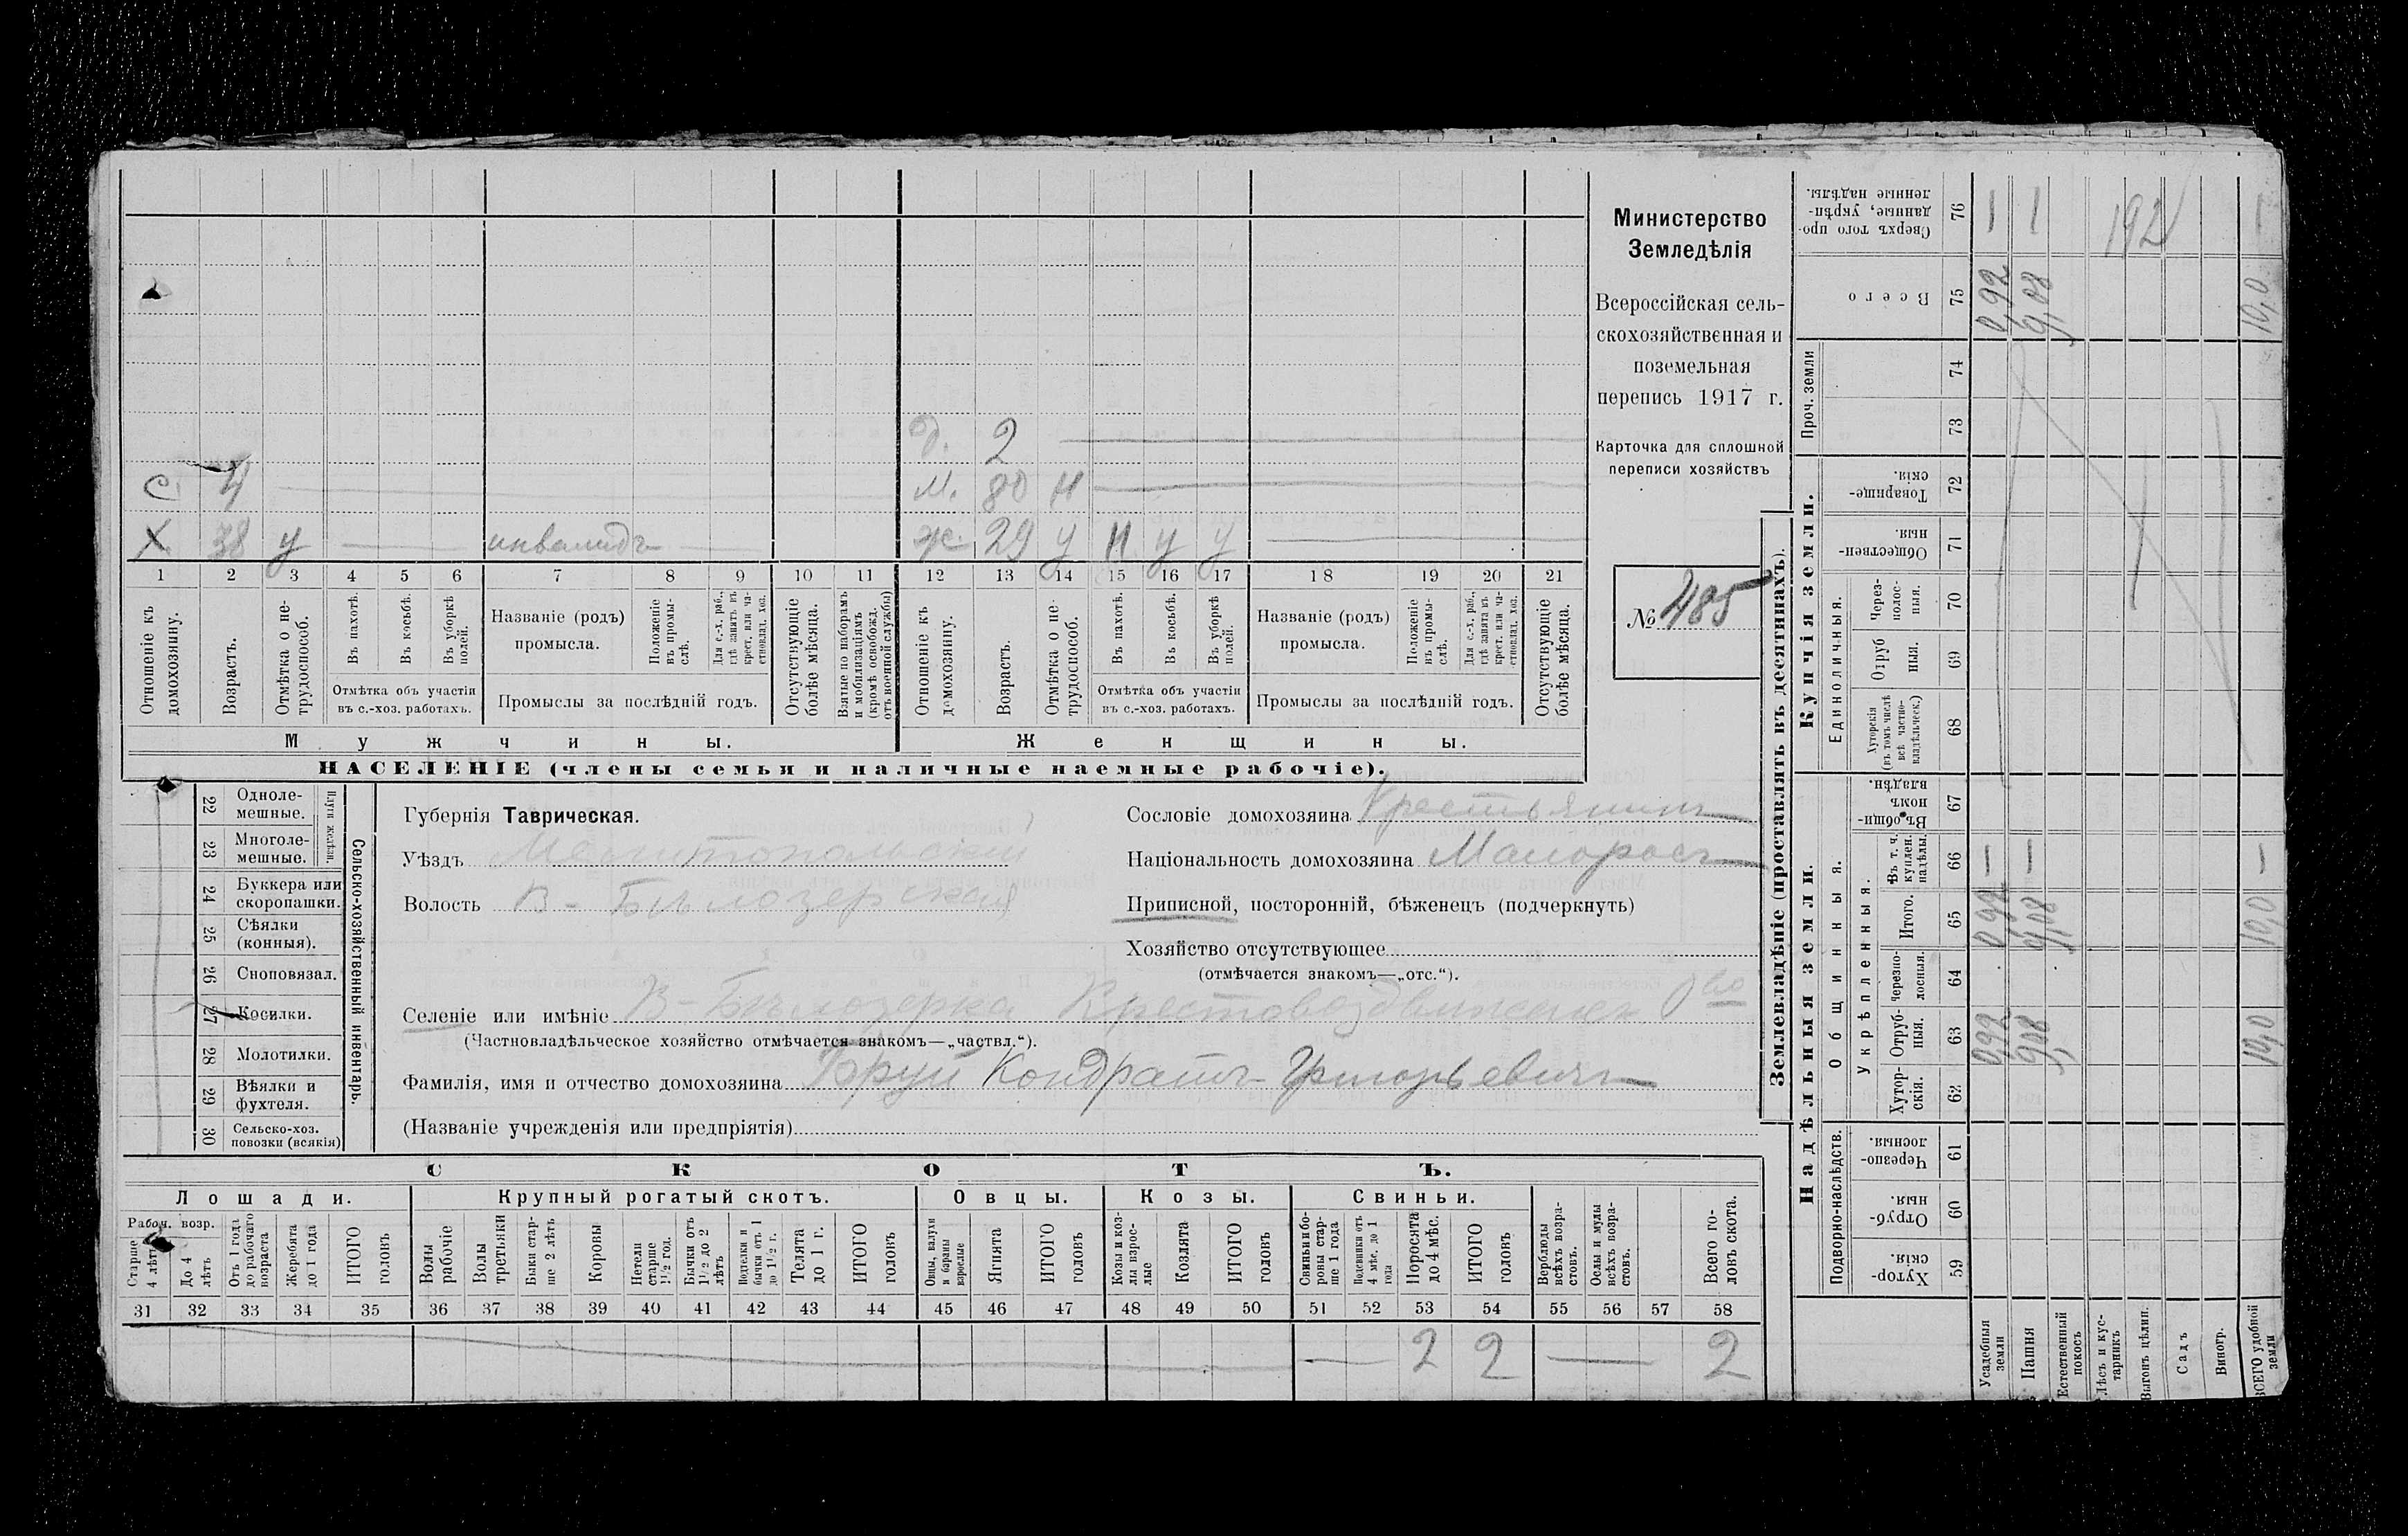 д. 2
С. 4 м. 80 н
Х 38 у инвалидъ ж. 29 у н у у
1 2 3 4 5 6 7 8 9 10 11 12 13 14 15 16 17 18 19 20 21
Отношеніе къ домохозяину.
Возрастъ.
Отмѣтка о нетрудоспособ.
Въ пахотѣ.
Въ косьбѣ.
Въ уборкѣ полей.
Отмѣтка объ участіи
въ с.-хоз. работахъ.
Названіе (родъ)
промысла.
Положеніе въ промыслѣ.
Для с.-х. раб., гдѣ занятъ въ крест. или частновлад. хоз.
Промыслы за послѣдній годъ.
Отсутствующіе болѣе мѣсяца.
Взятые по наборамъ и мобилизаціямъ (кромѣ освобожд. отъ военной службы)
Отношеніе къ домохозяину.
Возрастъ.
Отмѣтка о нетрудоспособ.
Въ пахотѣ.
Въ косьбѣ.
Въ уборкѣ полей.
Отмѣтка объ участіи
въ с.-хоз. работахъ.
Названіе (родъ)
промысла.
Положеніе въ промыслѣ.
Для с.-х. раб., гдѣ занята въ крест. или частновлад. хоз.
Промыслы за послѣдній годъ.
Отсутствующіе болѣе мѣсяца.
Мужчины. Женщины.
НАСЕЛЕНІЕ (члены семьи и наличные наемные рабочіе).
Министерство
Земледѣлія
Всероссійская сель-
скохозяйственная и
поземельная
перепись 1917 г.
Карточка для сплошной
переписи хозяйствъ
№ 485
22 Одноле-
мешные.
23 Многоле-
мешные.
Плуги желѣзн.
24 Буккера или
скоропашки.
25 Сѣялки
(конныя).
26 Сноповязал.
27 Косилки.
28 Молотилки.
29 Вѣялки и
фухтеля.
30 Сельско-хоз.
повозки (всякія)
Сельско-хозяйственный инвентарь.
Губернія Таврическая.
Уѣздъ Мелитопольскій
Волость В-Бѣлозерская
Сословіе домохозяина Крестьянинъ
Національность домохозяина Малоросъ
Приписной, посторонній, бѣженецъ (подчеркнуть)
Хозяйство отсутствующее
(отмѣчается знакомъ—„отс.“).
Селеніе или имѣніе В-Бѣлозерка Крестовоздвиженск. О-во
(Частновладѣльческое хозяйство отмѣчается знакомъ—„частвл.“).
Фамилія, имя и отчество домохозяина Бруй Кондратъ Григорьевичъ
(Названіе учрежденія или предпріятія)
СКОТЪ.
Лошади. Крупный рогатый скотъ. Овцы. Козы. Свиньи.
Рабоч. возр.
Старше 4 лѣтъ
До 4 лѣтъ
Отъ 1 года до рабочаго возраста
Жеребята до 1 года
ИТОГО головъ
Волы рабочіе
Волы третьяки
Быки старше 2 лѣтъ
Коровы
Нетели старше 1½ год.
Бычки отъ 1½ до 2 лѣтъ
Подтелки и бычки отъ 1 до 1½ г.
Телята до 1 г.
ИТОГО головъ
Овцы, валухи и бараны взрослые
Ягнята
ИТОГО головъ
Козы и козлы взрослые
Козлята
ИТОГО головъ
Свиньи и боровы старше 1 года
Подсвинки отъ 4 мѣс. до 1 года
Поросята до 4 мѣс.
ИТОГО головъ
Верблюды всѣхъ возрастовъ.
Ослы и мулы всѣхъ возрастовъ.
Всего головъ скота.
31 32 33 34 35 36 37 38 39 40 41 42 43 44 45 46 47 48 49 50 51 52 53 54 55 56 57 58
2 2 2
Землевладѣніе (проставлять въ десятинахъ).
Надѣльныя земли. Купчія земли.
Подворно-наслѣдств. Общинныя. Единоличныя. Проч. земли
Укрѣпленныя.
Хуторскія. 59
Отрубныя. 60
Черезполосныя. 61
Хуторскія. 62
Отрубныя. 63 0,92 9,08 10,0
Черезполосныя. 64
Итого. 65 0,92 9,08 10,0
Въ т. ч. куплен. надѣлы. 66 — — —
Въ общинномъ владѣн. 67
Хуторскія (въ томъ числѣ всѣ частновладѣльческ.) 68
Отрубныя. 69
Черезполосныя. 70
Общественныя. 71
Товарищескія. 72
73
74
Всего 75 0,92 9,08 10,0
Сверхъ того проданные, укрѣпленные надѣлы. 76 — — —
192
Усадебныя земли
Пашня
Естественный покосъ
Лѣсъ и кустарникъ
Выгонъ цѣлин.
Садъ
Виногр.
ВСЕГО удобной земли